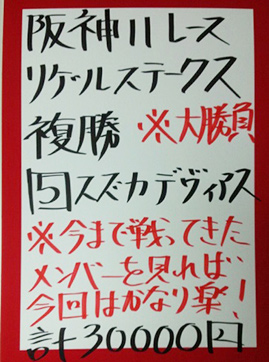 阪神11レース
リゲルステークス
複勝 ※大勝負
5スズカデヴィアス
※今まで戦ってきた
メンバーを見れば、
今回はかなり楽!
計30000円